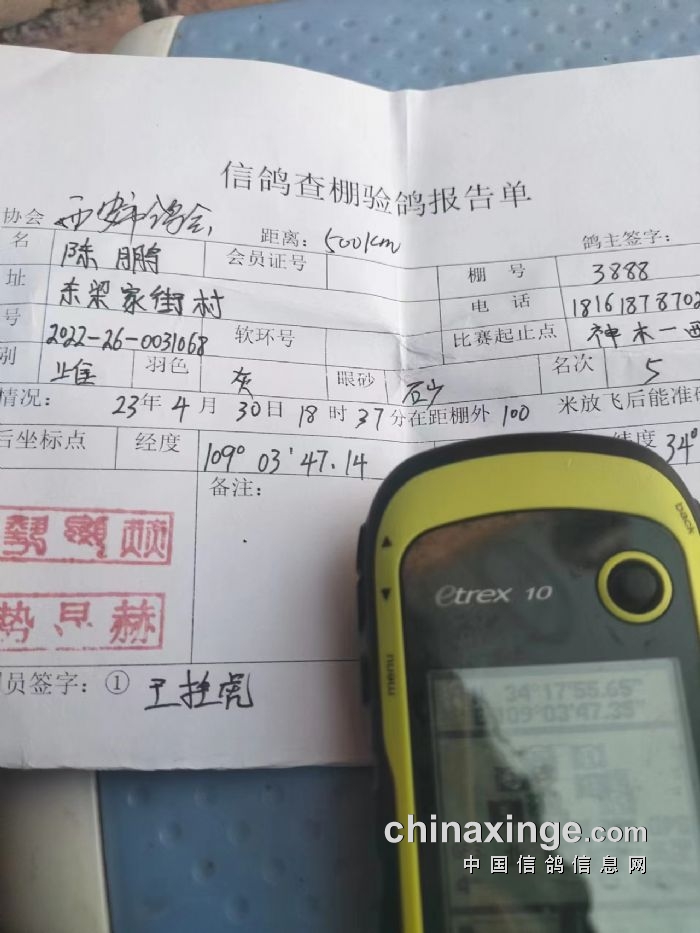 信鸽查棚验鸽报告单
协会 西安市鸽会 距离: 500km 鸽主签字:
名 陈鹏 会员证号 棚号 3888
址 东梁家街村 电话 18161878702
号 2022-26-0031068 软环号 比赛起止点 神木一西
别 雄 羽色 灰 眼砂 砂 名次 5
情况: 23年4月30日18时37分在距棚外100米放飞后能准确
后坐标点 经度 109° 03'47.14 纬度 34°
备注:
员签字: ① 王拴虎
back
etrex 10
menu
34°17'55.65"
109°03'47.35"
chinaxinge.com
中国信鸽信息网